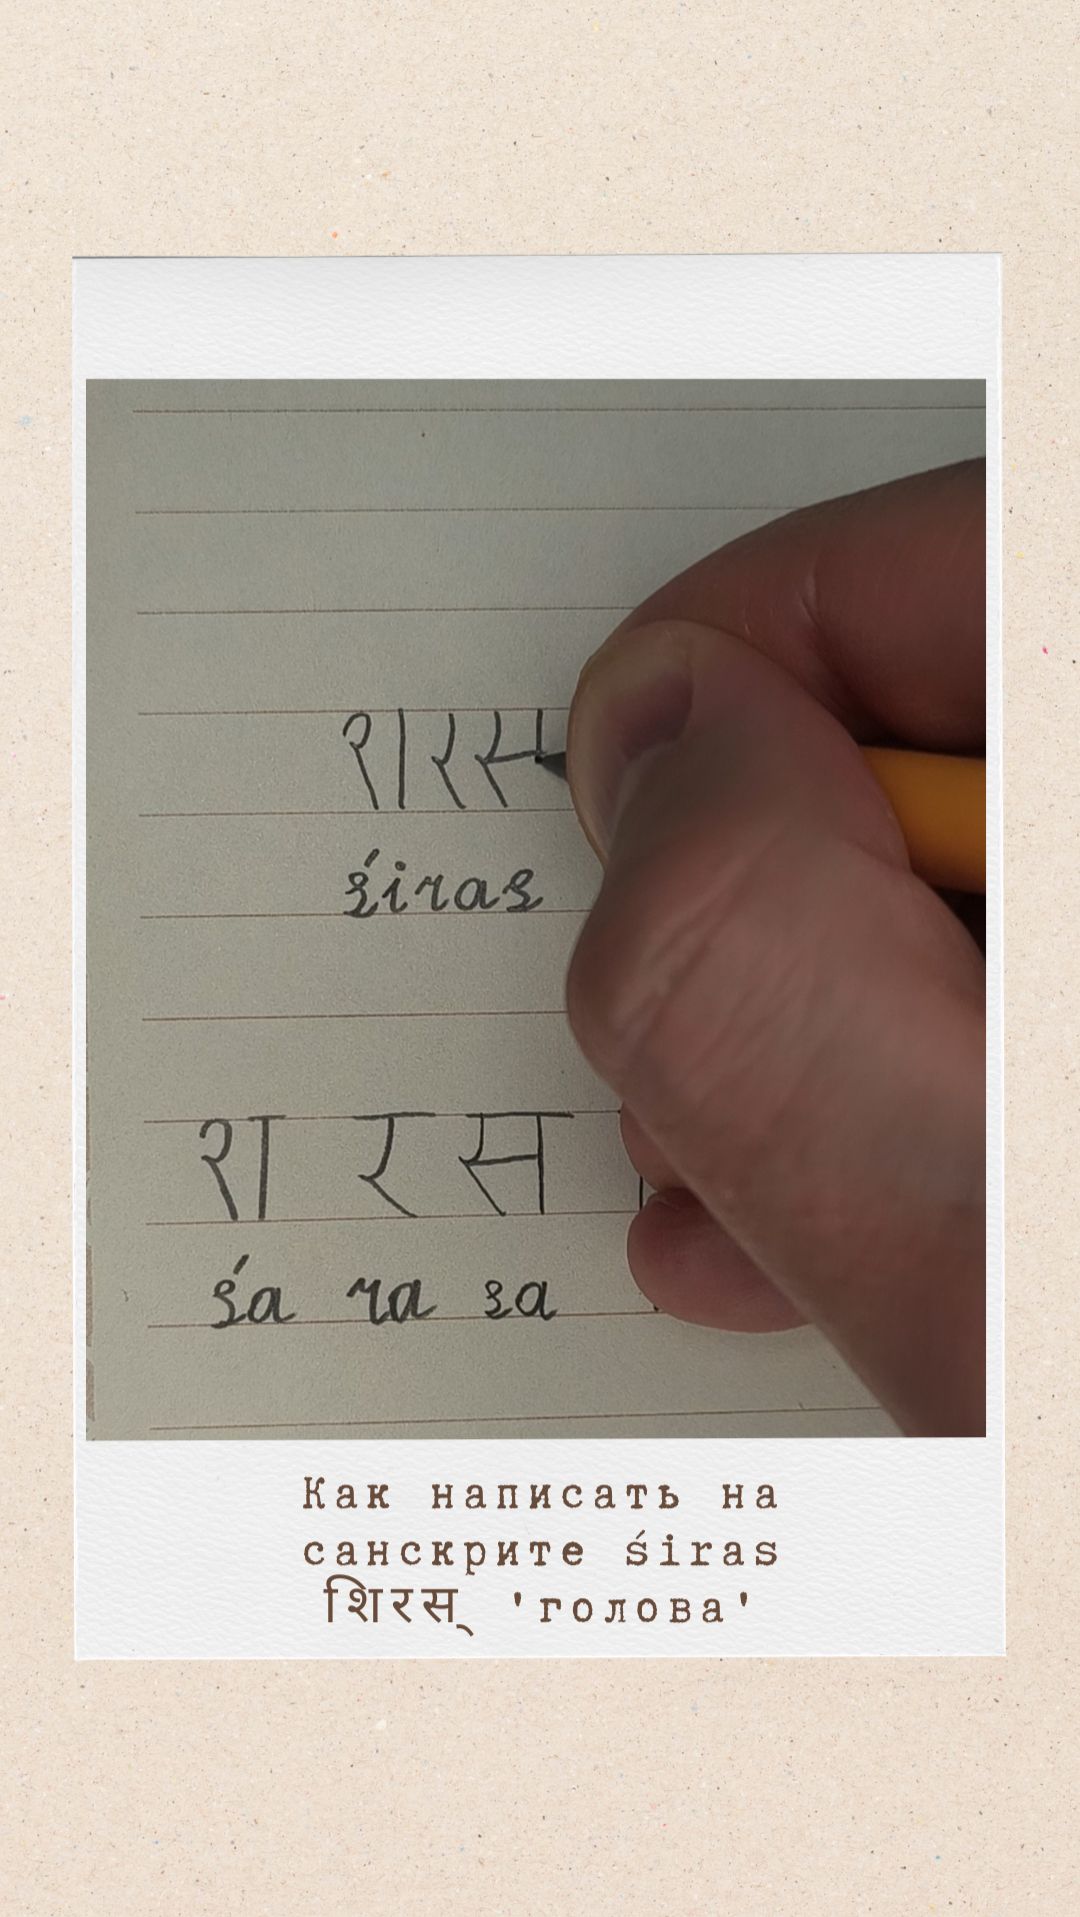 शरस
śiras
श र स
śa ra sa
Как написать на
санскрите śiras
शिरस् 'голова'